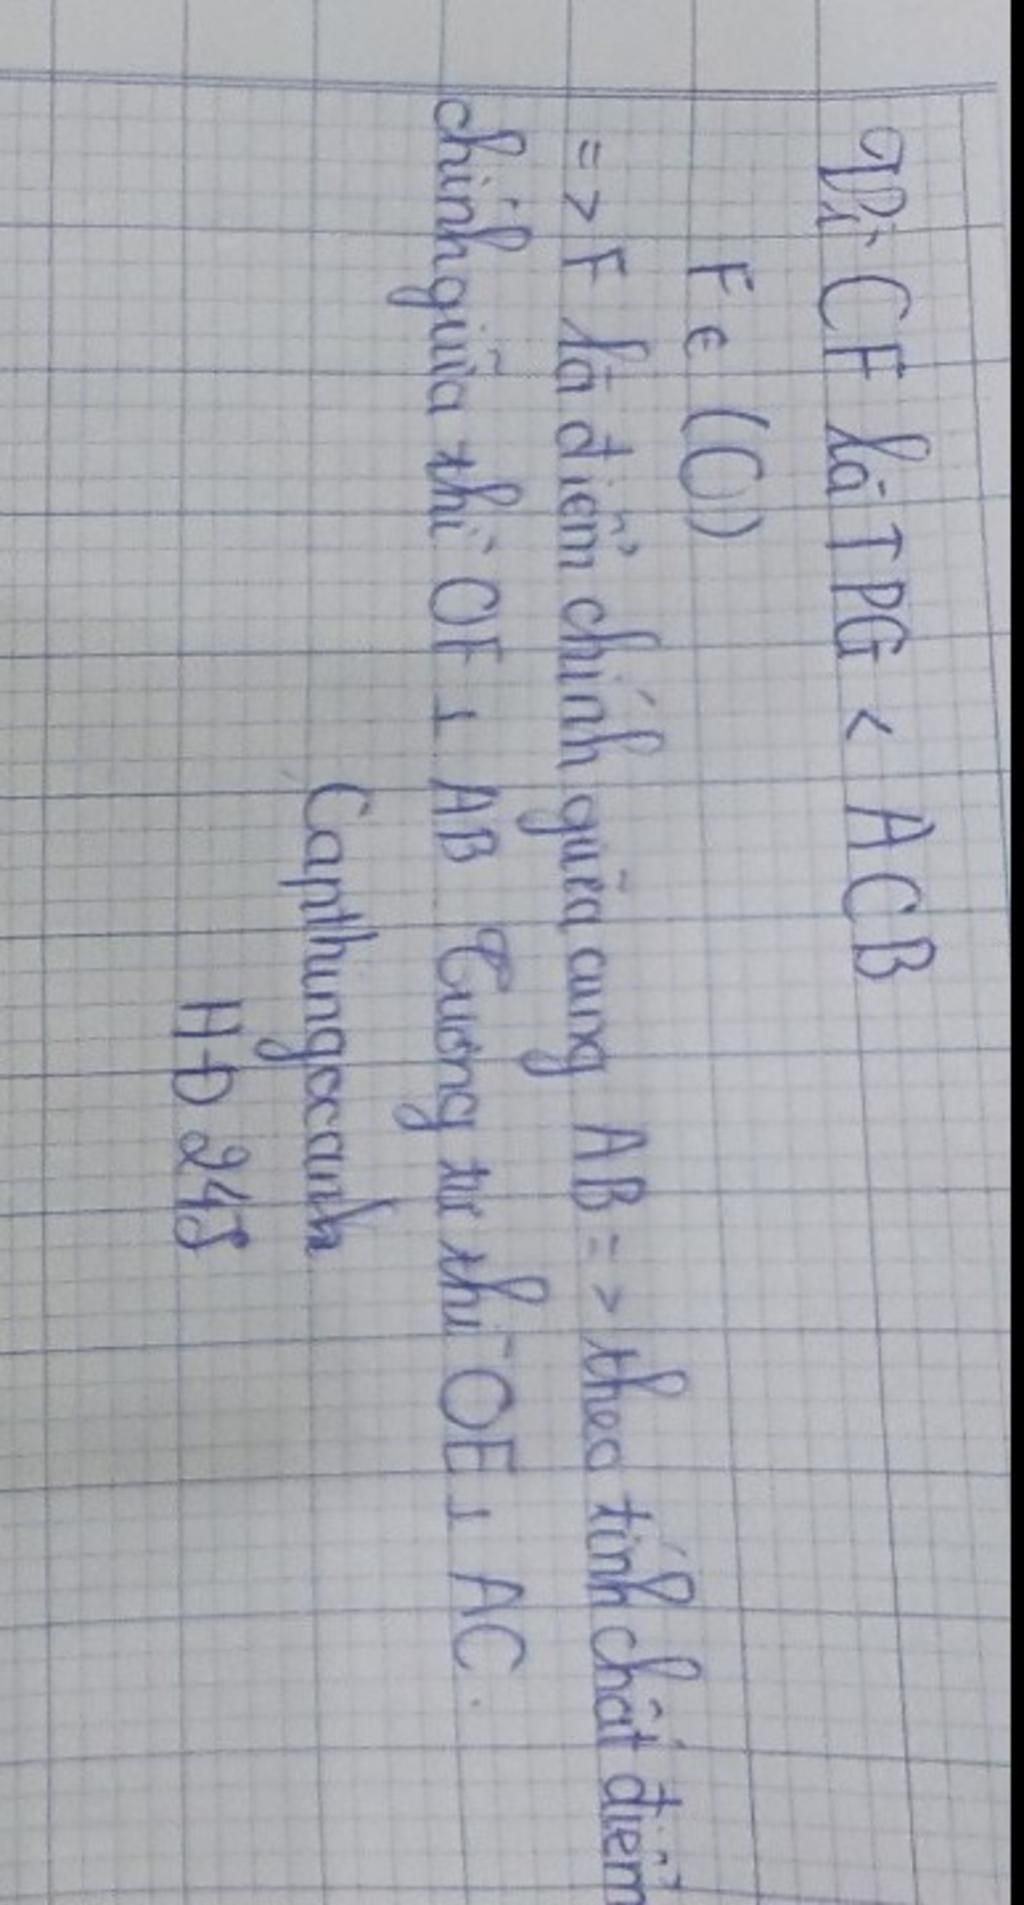 Vì CF là TPG < ACB
F ∈ (C)
=> F là điểm chính giữa cung AB => theo tính chất điểm
chính giữa thì OF ⊥ AB Tương tự thì OE ⊥ AC.
Capthingocanh
HĐ 245